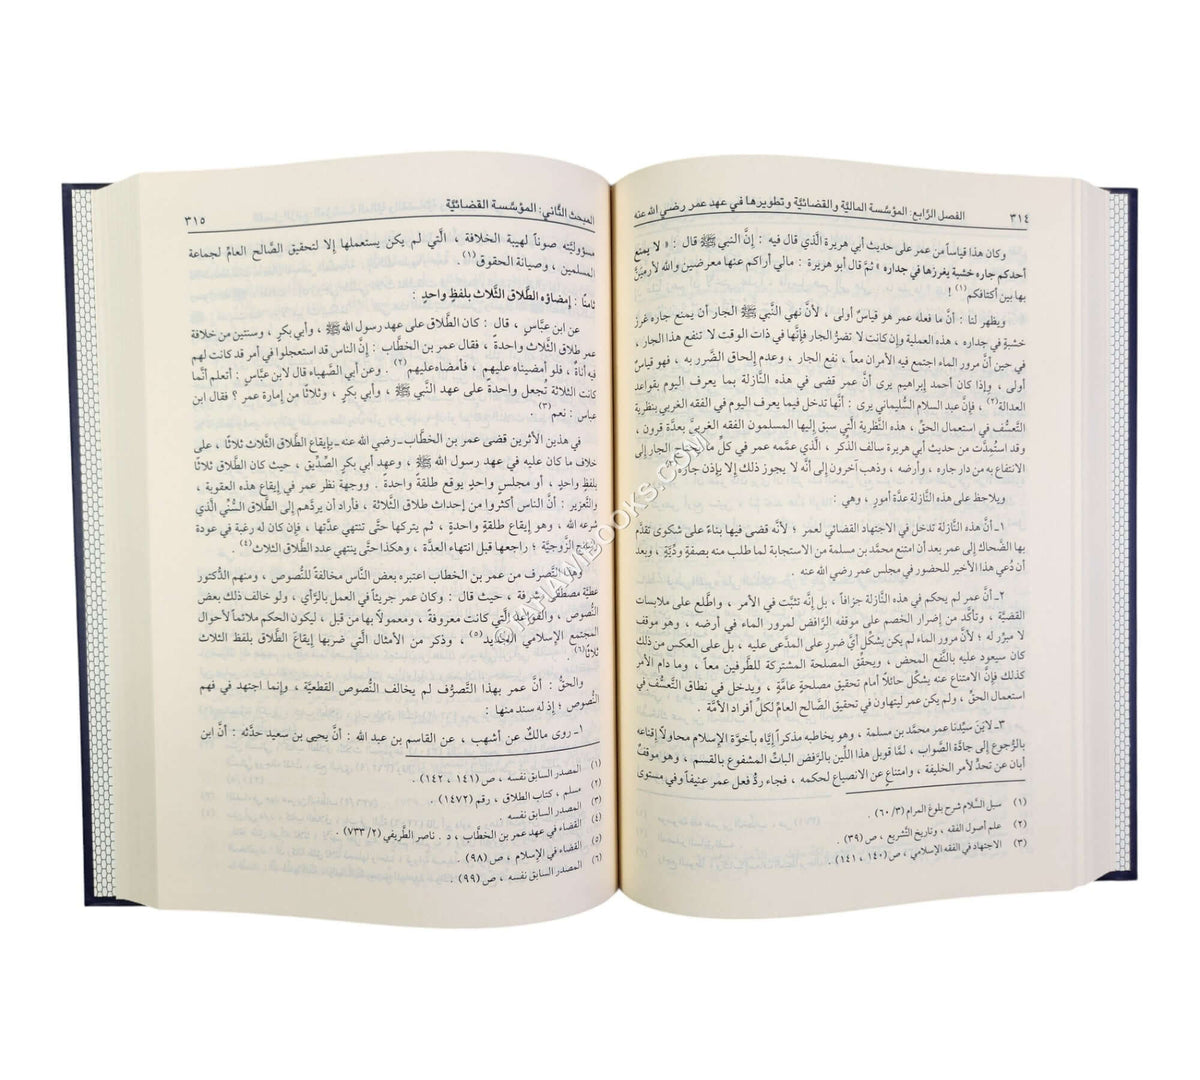 ٣١٤
الفصل الرَّابع: المؤسَّسة الماليَّة والقضائيَّة وتطويرها في عهد عمر رضي الله عنه
وكان هذا قياساً من عمر على حديث أبي هريرة الَّذي قال فيه : إنَّ النبي ﷺ قال : « لا يمنع
أحدكم جاره خشبة يغرزها في جداره » ثمَّ قال أبو هريرة : مالي أراكم عنها معرضين والله لأرمينَّ
بها بين أكتافكم(١) !
ويظهر لنا : أنَّ ما فعله عمر هو قياسٌ أولى ، لأنَّ نهي النَّبيِّ ﷺ الجار أن يمنع جاره غرز
خشبةٍ في جداره ، هذه العملية وإن كانت لا تضرُّ الجار فإنَّها في ذات الوقت لا تنفع هذا الجار ،
في حين أنَّ مرور الماء اجتمع فيه الأمران معاً ، نفع الجار ، وعدم إلحاق الضَّرر به ، فهو قياسٌ
أولى ، وإذا كان أحمد إبراهيم يرى أنَّ عمر قضى في هذه النَّازلة بما يعرف اليوم بقواعد
العدالة(٢) ، فإنَّ عبد السلام السُّليماني يرى : أنَّها تدخل فيما يعرف اليوم في الفقه الغربي بنظرية
التَّعسُّف في استعمال الحقِّ ، هذه النَّظرية الَّتي سبق إليها المسلمون الفقه الغربيَّ بعدَّة قرون ،
وقد استُمِدَّت من حديث أبي هريرة سالف الذِّكر ، الَّذي عمَّمه عمر في كلِّ ما يحتاج الجار إلى
الانتفاع به من دار جاره ، وأرضه ، وذهب آخرون إلى أنَّه لا يجوز ذلك إلا بإذن جاره(٣) .
ويلاحظ على هذه النَّازلة عدَّة أمورٍ ، وهي :
١ـ أنَّ هذه النَّازلة تدخل في الاجتهاد القضائي لعمر ؛ لأنَّه قضى فيها بناءً على شكوى تقدَّم
بها الضَّحاك إلى عمر بعد أن امتنع محمَّد بن مسلمة من الاستجابة لما طلب منه بصفةٍ ودِّيَّةٍ ، وبعد
أن دُعي هذا الأخير للحضور في مجلس عمر رضي الله عنه
٢ـ أنَّ عمر لم يحكم في هذه النَّازلة جزافاً ، بل إنَّه تثبَّت في الأمر ، واطَّلع على ملابسات
القضيَّة ، وتأكَّد من إضرار الخصم على موقفه الرَّافض لمرور الماء في أرضه ، وهو موقف
لا مبرِّر له ؛ لأنَّ مرور الماء لم يكن يشكِّل أيَّ ضررٍ على المدَّعى عليه ، بل على العكس من ذلك
كان سيعود عليه بالنَّفع المحض ، ويحقِّق المصلحة المشتركة للطَّرفين معاً ، وما دام الأمر
كذلك فإنَّ الامتناع عنه يشكِّل حائلاً أمام تحقيق مصلحةٍ عامَّةٍ ، ويدخل في نطاق التَّعسُّف في
استعمال الحقِّ ، ولم يكن عمر ليتهاون في تحقيق الصَّالح العامِّ لكلِّ أفراد الأمَّة .
٣ـ لايَنَ سيِّدنا عمر محمَّد بن مسلمة ، وهو يخاطبه مذكراً إيَّاه بأخوَّة الإسلام محاولاً إقناعه
بالرُّجوع إلى جادَّة الصَّواب ، لمَّا قوبل هذا اللِّين بالرَّفض الباتِّ المشفوع بالقسم ، وهو موقفٌ
أبان عن تحدٍّ لأمر الخليفة ، وامتناعٍ عن الانصياع لحكمه ، فجاء ردُّ فعل عمر عنيفاً وفي مستوى
(١) سبل السَّلام شرح بلوغ المرام (٣/ ٦٠) .
(٢) علم أصول الفقه ، وتاريخ التَّشريع ، ص (٣٩) .
(٣) الاجتهاد في الفقه الإسلامي ، ص (١٤٠ ، ١٤١) .
المبحث الثَّاني: المؤسَّسة القضائيَّة
٣١٥
مسؤوليَّته صوناً لهيبة الخلافة ، الَّتي لم يكن يستعملها إلا لتحقيق الصَّالح العامِّ لجماعة
المسلمين ، وصيانة الحقوق(١) .
ثامناً : إمضاؤه الطَّلاق الثَّلاث بلفظٍ واحدٍ :
عن ابن عبَّاس ، قال : كان الطَّلاق على عهد رسول الله ﷺ ، وأبي بكرٍ ، وسنتين من خلافة
عمر طلاق الثَّلاث واحدةً ، فقال عمر بن الخطَّاب : إنَّ الناس قد استعجلوا في أمر قد كانت لهم
فيه أناةٌ ، فلو أمضيناه عليهم ، فأمضاه عليهم(٢) . وعن أبي الصَّهباء قال لابن عبَّاس : أتعلم أنَّما
كانت الثلاثة تُجعل واحدةً على عهد النَّبي ﷺ ، وأبي بكرٍ ، وثلاثًا من إمارة عمر ؟ فقال ابن
عباس : نعم(٣) .
في هذين الأثرين قضى عمر بن الخطَّاب ـ رضي الله عنه ـ بإيقاع الطَّلاق الثَّلاث ثلاثًا ، على
خلاف ما كان عليه في عهد رسول الله ﷺ ، وعهد أبي بكرٍ الصِّدِّيق ، حيث كان الطَّلاق ثلاثاً
بلفظٍ واحدٍ ، أو مجلسٍ واحدٍ يوقع طلقةً واحدةً . ووجهة نظر عمر في إيقاع هذه العقوبة ،
والتَّعزير : أنَّ الناس أكثروا من إحداث طلاق الثَّلاثة ، فأراد أن يردَّهم إلى الطَّلاق السُّنِّي الَّذي
شرعه الله ، وهو إيقاع طلقةٍ واحدةٍ ، ثم يتركها حتَّى تنتهي عدَّتها ، فإن كان له رغبة في عودة
الزَّوجيَّة ؛ راجعها قبل انتهاء العدَّة ، وهكذا حتَّى ينتهي عدد الطَّلاق الثلاث(٤) .
وهذا التَّصرف من عمر بن الخطاب اعتبره بعض النَّاس مخالفةً للنُّصوص ، ومنهم الدُّكتور
عطيَّة مصطفى مشرفة ، حيث قال : وكان عمر جريئاً في العمل بالرَّأي ، ولو خالف ذلك بعض
النُّصوص ، والقواعد الَّتي كانت معروفةً ، ومعمولاً بها من قبل ، ليكون الحكم ملائماً لأحوال
المجتمع الإسلامي الجديد(٥) ، وذكر من الأمثال الَّتي ضربها إيقاعَ الطَّلاق بلفظ الثلاث
ثلاثاً(٦) .
والحقُّ : أنَّ عمر بهذا التَّصرُّف لم يخالف النُّصوص القطعيَّة ، وإنما اجتهد في فهم
النُّصوص ؛ إذ له سند منها :
١ـ روى مالكٌ عن أشهب ، عن القاسم بن عبد الله : أنَّ يحيى بن سعيد حدَّثه : أنَّ ابن
(١) المصدر السابق نفسه ، ص (١٤١ ، ١٤٢) .
(٢) مسلم ، كتاب الطلاق ، رقم (١٤٧٢) .
(٣) المصدر السابق نفسه
(٤) القضاء في عهد عمر بن الخطَّاب ، د . ناصر الطَّريفي (٢/ ٧٣٣) .
(٥) القضاء في الإسلام ، ص (٩٨) .
(٦) المصدر السابق نفسه ، ص (٩٩) .